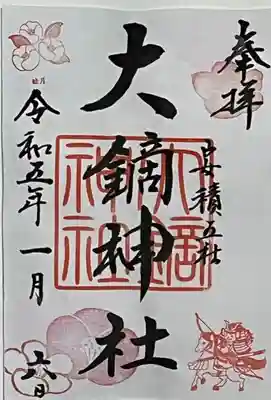 奉拝
安積五社
大鏑神社
大鏑神社
睦月
令和五年一月
六日